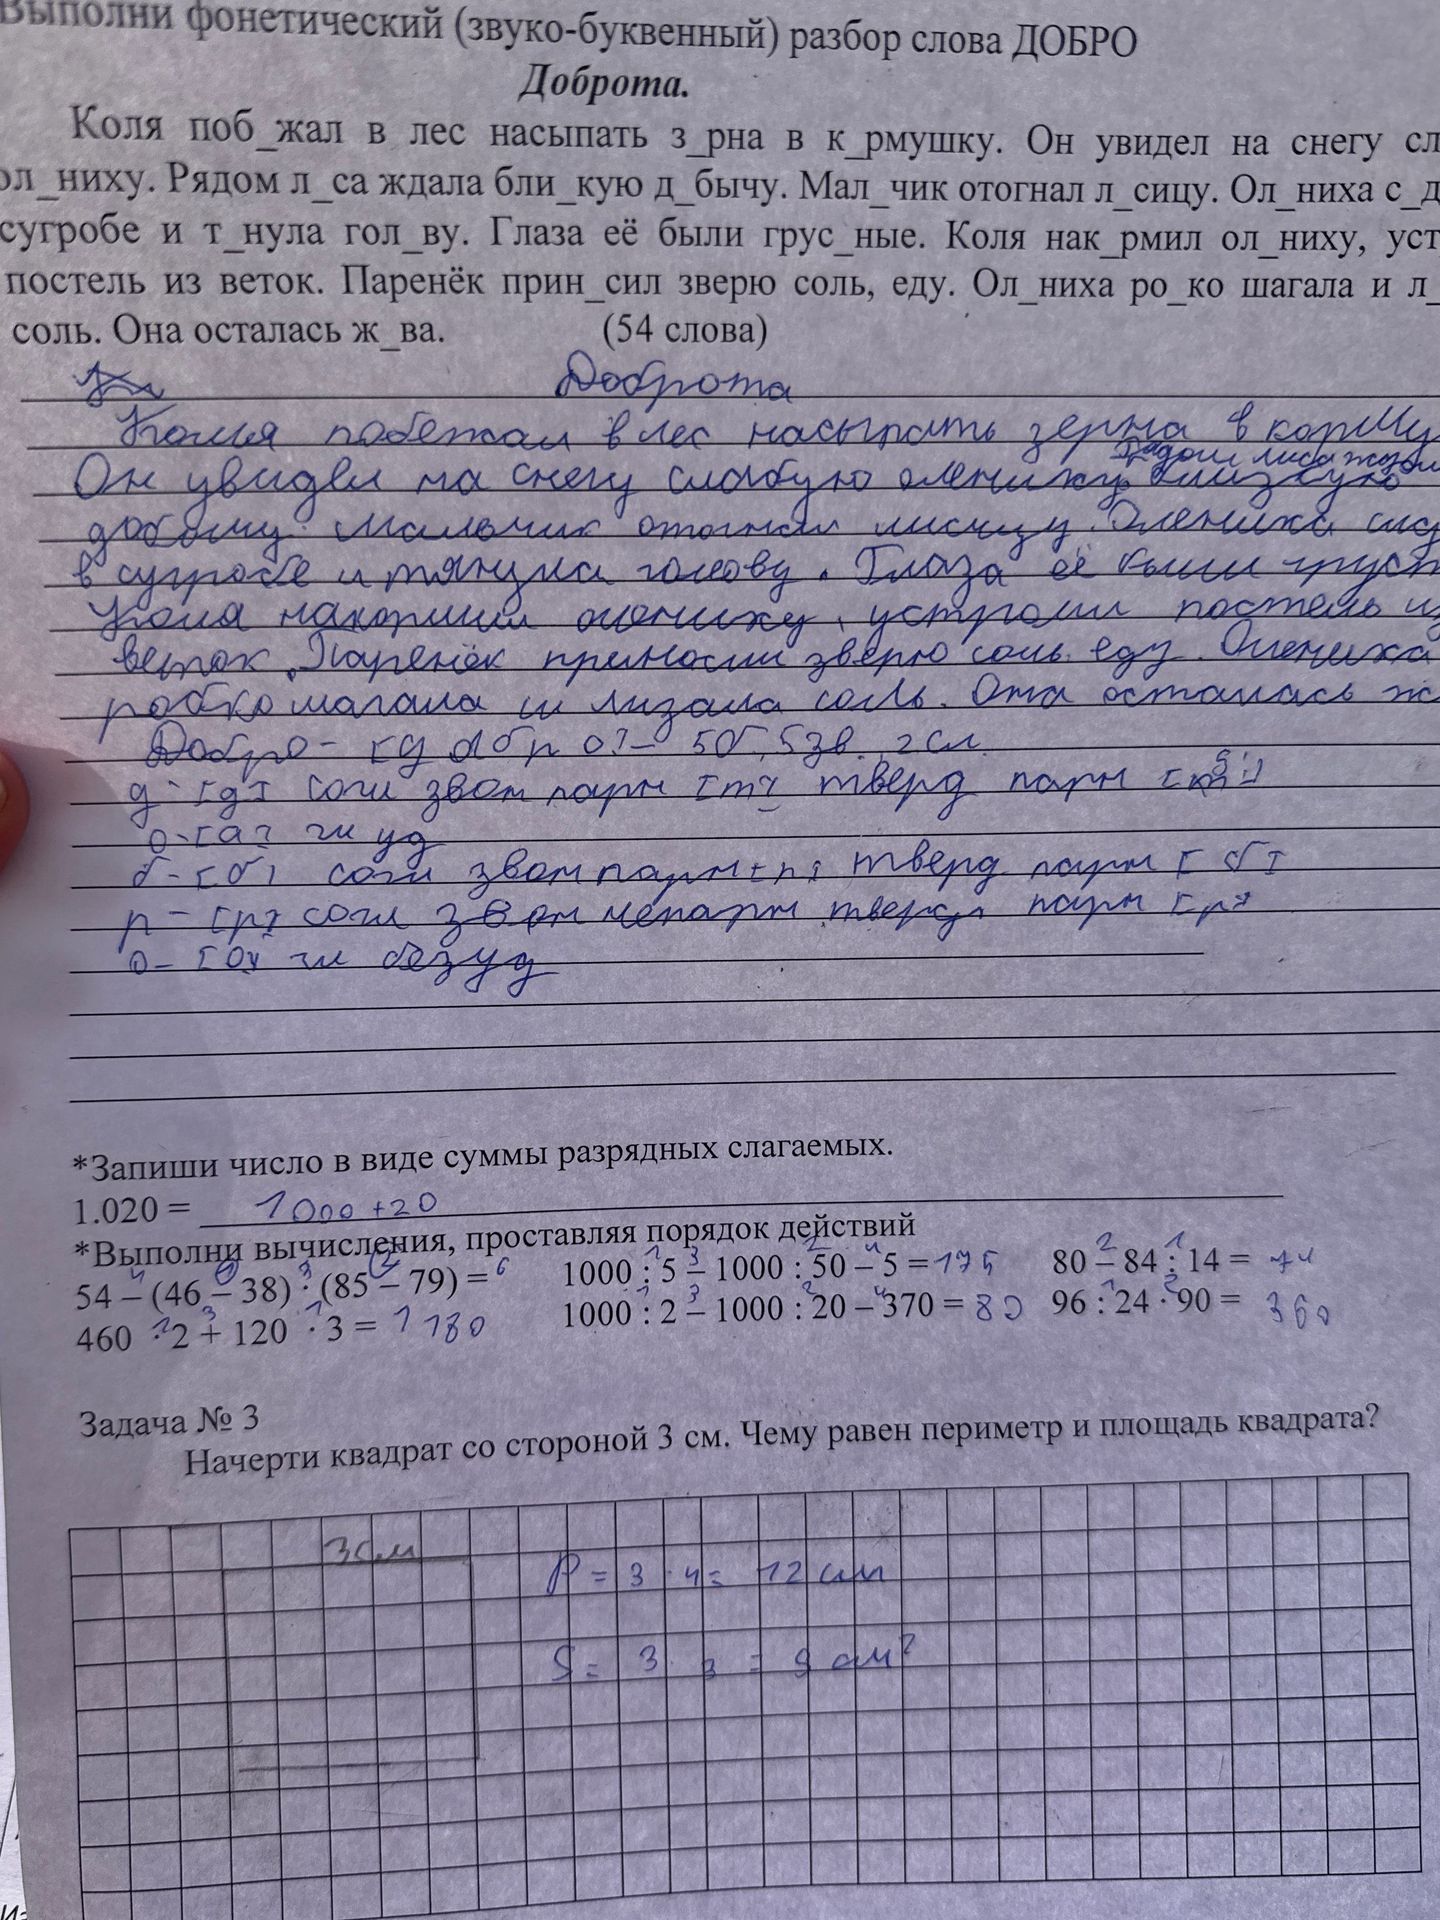 Выполни фонетический (звуко-буквенный) разбор слова ДОБРО
Доброта.
Коля поб_жал в лес насыпать з_рна в к_рмушку. Он увидел на снегу сл
ол_ниху. Рядом л_са ждала бли_кую д_бычу. Мал_чик отогнал л_сицу. Ол_ниха с_д
сугробе и т_нула гол_ву. Глаза её были грус_ные. Коля нак_рмил ол_ниху, уст
постель из веток. Паренёк прин_сил зверю соль, еду. Ол_ниха ро_ко шагала и л_
соль. Она осталась ж_ва. (54 слова)
Доброта
Коля побежал в лес насыпать зерна в корму
Рядом лиса ждала
Он увидел на снегу слабую олениху близкую
добычу. Мальчик отогнал лисицу. Олениха сид
в сугробе и тянула голову. Глаза её были груст
Коля накормил олениху, устроил постель из
веток. Паренёк приносил зверю соль, еду. Олениха
робко шагала и лизала соль. Она осталась ж
Добро - [д а б р о] - 5 б, 5 зв, 2 сл.
д - [д] согл звон парн [т] тверд парн
о - [а] гл уд
б - [б] согл звон парн [п] тверд парн [б]
р - [р] согл звон непарн тверд парн [р]
о - [о] гл безуд
*Запиши число в виде суммы разрядных слагаемых.
1.020 = 1000+20
*Выполни вычисления, проставляя порядок действий
54 – (46 – 38) : (85 – 79) = 6 1000 : 5 – 1000 : 50 – 5 = 175 80 – 84 : 14 = 74
460 · 2 + 120 · 3 = 1180 1000 : 2 – 1000 : 20 – 370 = 80 96 : 24 · 90 = 360
Задача № 3
Начерти квадрат со стороной 3 см. Чему равен периметр и площадь квадрата?
3см
P = 3 · 4 = 12 см
S = 3 · 3 = 9 см²